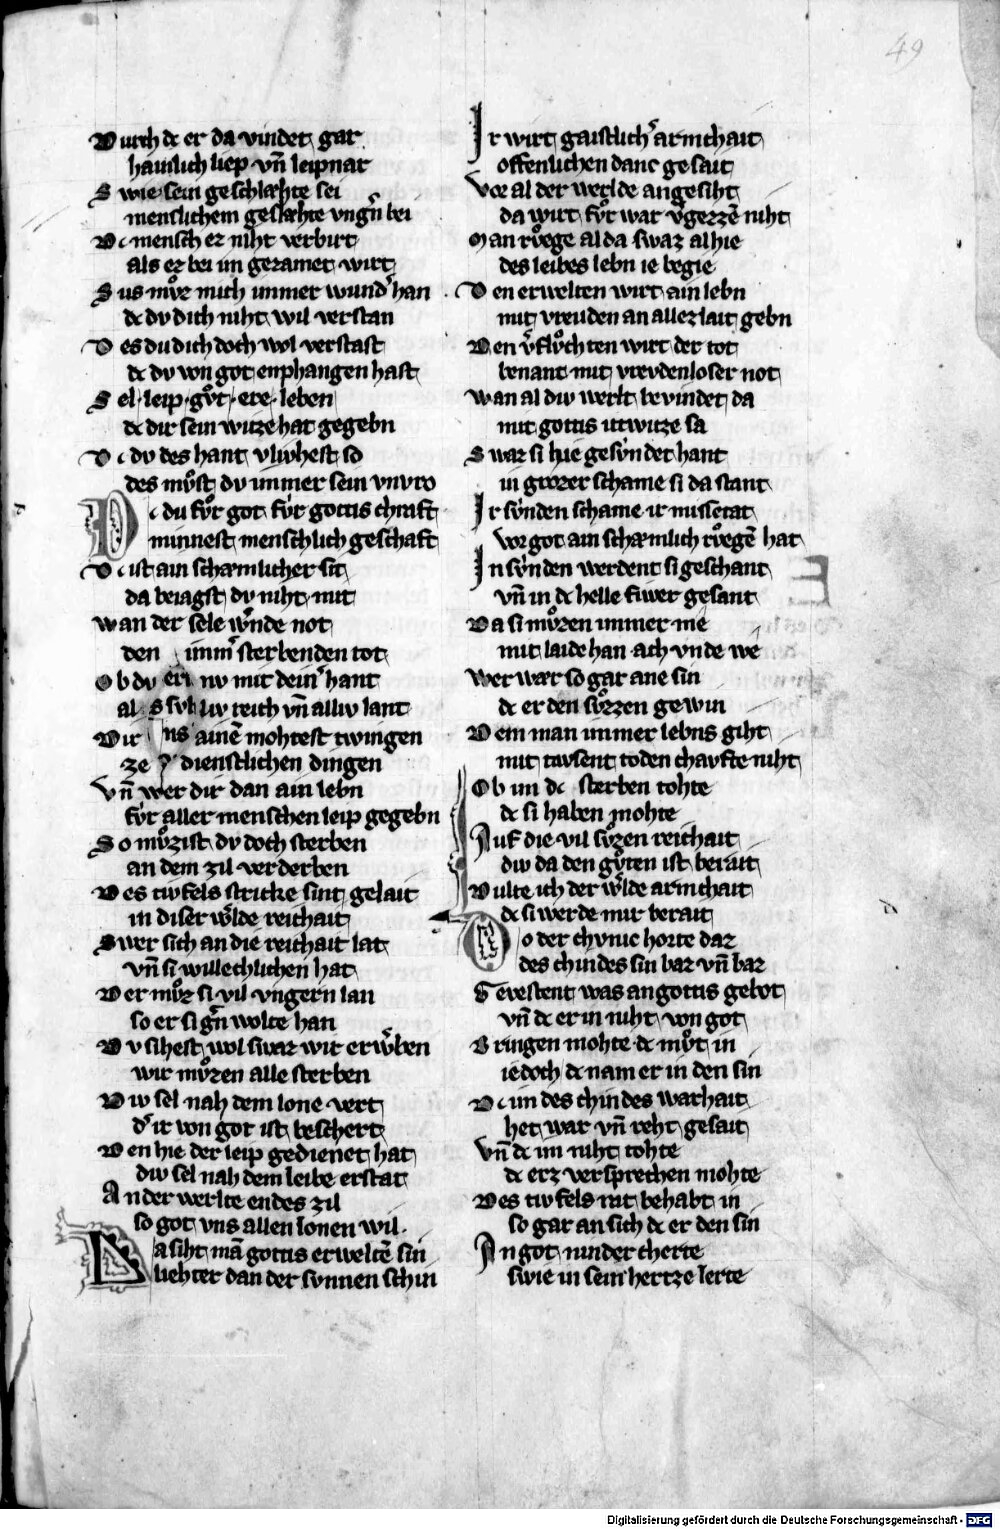 49
Durch dc er da vindet gar
häuslich liep vn̄ leipnar
Swie sein geschlæhte sei
menslichem geslæhte vngn̄ bei
Dc mensch ez niht verbirt
als ez bei im gezamet wirt
Sus mvͦz mich immer wundˢ han
dc dv dich niht wil verstan
Des du dich doch wol verstast
dc dv von got enphangen hast
Sel leip gvͦt ere leben
dc dir sein witze hat gegebn
Dc dv des hant vliuhest so
des mvͦst dv immer sein vnvro
Dc du fvͦr got fvͤr gottis chraft
minnest menschlich geschaft
Dc ist ain schæmlicher sit
da beiagst dv niht mit
wan der sele wernde not
den immˢ sterbenden tot
Ob dv nv mit deinˢ hant
al liv reich vn̄ alliv lant
Dir ainē mohtest twingen
ze dienstlichen dingen
Vn̄ wer dir dan ain lebn
fvͤr aller menschen leip gegebn
So mvͦzist dv doch sterben
an dem zil verderben
Des tivfels stricke sint gelait
in diser wˢlde reichait
Swer sich an die reichait lat
vn̄ si willechlichen hat
Der mvͦz si vil vngern lan
so er si gn̄ wolte han
Dv sihest wol swaz wir erwˢben
wir mvͦzen alle sterben
Div sel nah dem lone vert
dˢ ir von got ist beschert
Den hie der leip gedienet hat
div sel nah dem leibe erstat
An der werlte endes zil
so got vns allen lonen wil
Da siht mā gottis erweltē sin
liehter dan der svnnen schin
Ir wirt gaistlichˢ armchait
offenlichen danc gesait
Vor al der werlde angesiht
da wirt fvͦr war vˢgezzē niht
Man rvͤege al da swaz al hie
des leibes lebn ie begie
Den erwelten wirt ain lebn
mit vreuden an allez lait gebn
Den vˢflvͦchten wirt der tot
benant mit vrevdenloser not
wan al div werlt bevindet da
mit gottis itwitze sa
Swaz si hie gesvͤndet hant
in grozer schame si da stant
Ir svͤnden schame ir missetat
vor got ain schæmlich rvͤegē hat
In svͤnden werdent si geschant
vn̄ in dc helle fiwer gesant
Da si mvͤzen immer me
mit laide han ach vnde we
wer wær so gar ane sin
dc er den svͤzzen gewin
Dem man immer lebns giht
mit tavsent toden chavfte niht
Ob im dc sterben tohte
dc si haben mohte
Auf die vil svͤzen reichait
div da den gvͤten ist berait
Dulte ich der wˢlde armchait
dc si werde mir berait
Do der chvnic horte daz
des chindes sin baz vn̄ baz
Gevestent was an gottis gebot
vn̄ dc er in niht von got
Bringen mohte dc mvͤt in
iedoch dc nam er in den sin
Dc im des chindes warhait
het war vn̄ reht gesait
Vn̄ dc im niht tohte
dc erz versprechen mohte
Des tivfels rat behabt in
so gar an sich dc er den sin
An got ninder cherte
swie in sein hertze lerte
Digitalisierung gefördert durch die Deutsche Forschungsgemeinschaft - DFG